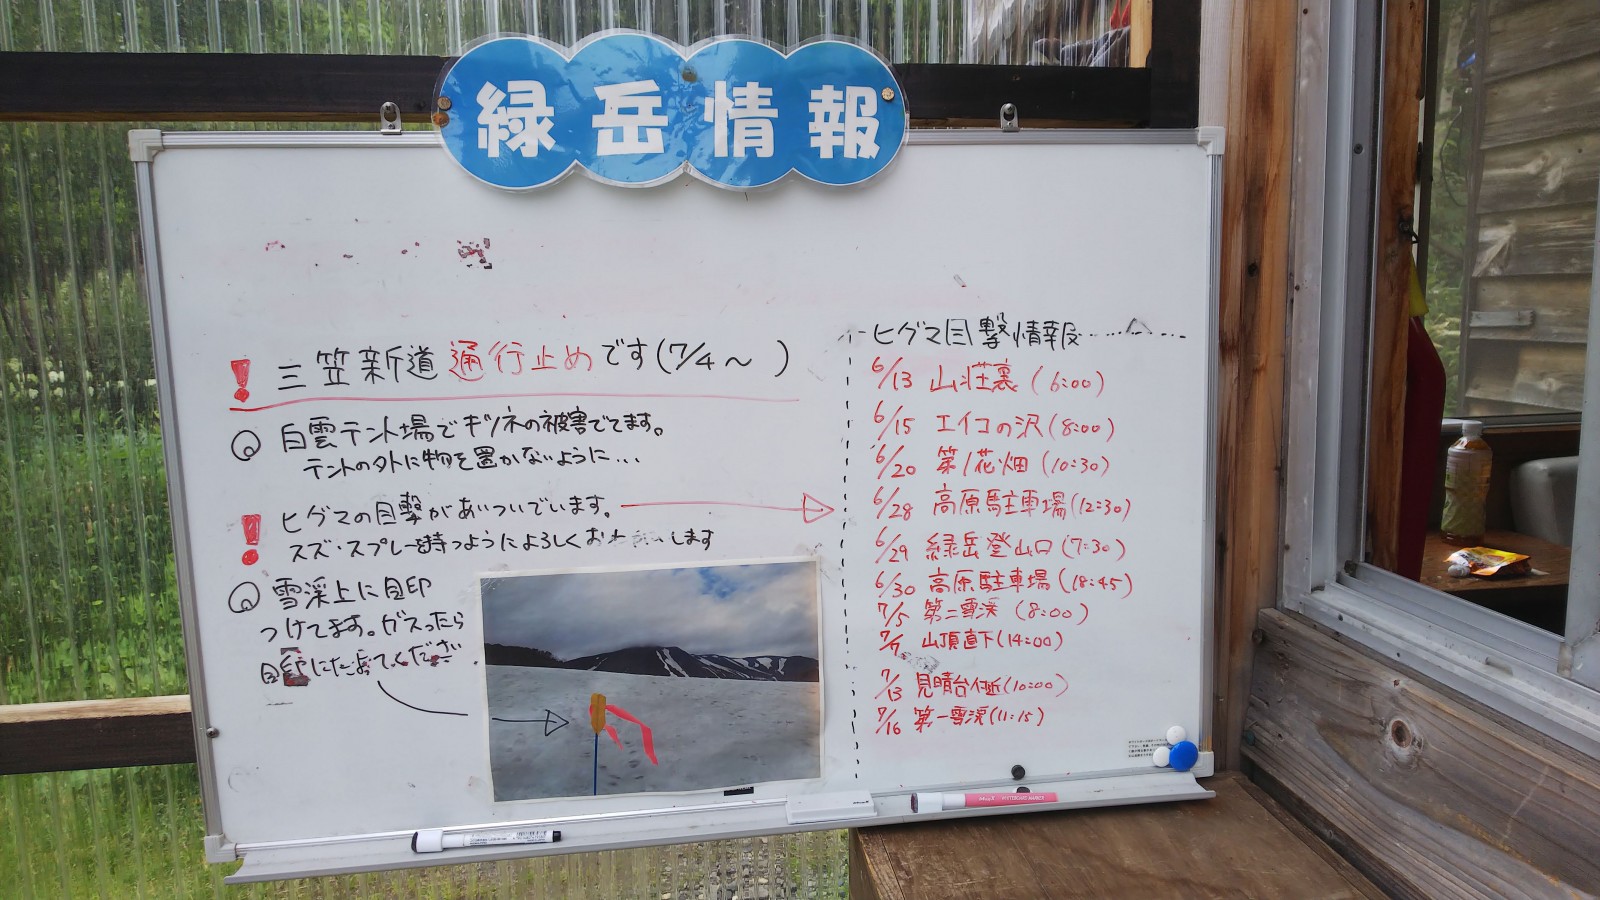 緑岳情報
! 三笠新道通行止めです(7/4～ )
白雲テント場でキツネの被害でてます。
テントの外に物を置かないように...
! ヒグマの目撃があいついでいます。
スズ・スプレーを持つようによろしくおねがいします
雪渓上に目印
つけてます。ガスったら
目印にたよってください
ヒグマ目撃情報
6/13 山荘裏 (6:00)
6/15 エイコの沢 (8:00)
6/20 第1花畑 (10:30)
6/28 高原駐車場 (12:30)
6/29 緑岳登山口 (7:30)
6/30 高原駐車場 (18:45)
7/5 第二雪渓 (8:00)
山頂直下 (14:00)
7/13 見晴台付近 (10:00)
7/16 第一雪渓 (11:15)
WHITEBOARD MARKER